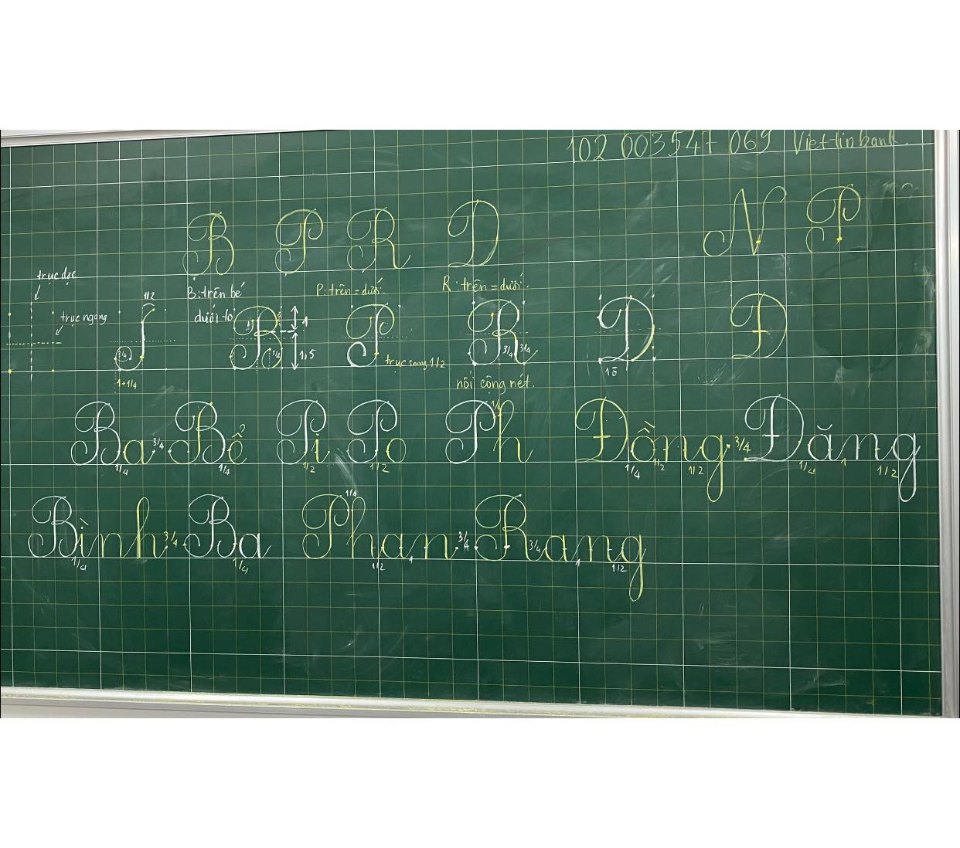 102 003547 069 Viettinbank.
B P R D N P
trục dọc
trục ngang
1/2
3/4
1+1/4
B: trên bé
dưới to
1
1,5
P: trên = dưới
trục song 1/2
R: trên = dưới.
3/4 3/4
nối cộng nét.
D Đ
1,5
Ba 3/4 Bể Pi Po Ph Đồng 3/4 Đăng
1/4 1/4 1/2 1/2 1/4 1/4 1/2 1/2 1/4 1 1/2
Bình 3/4 Ba Phan 3/4 Rang
1/4 1/4 1/4 1/2 1 3/4 1 1/2